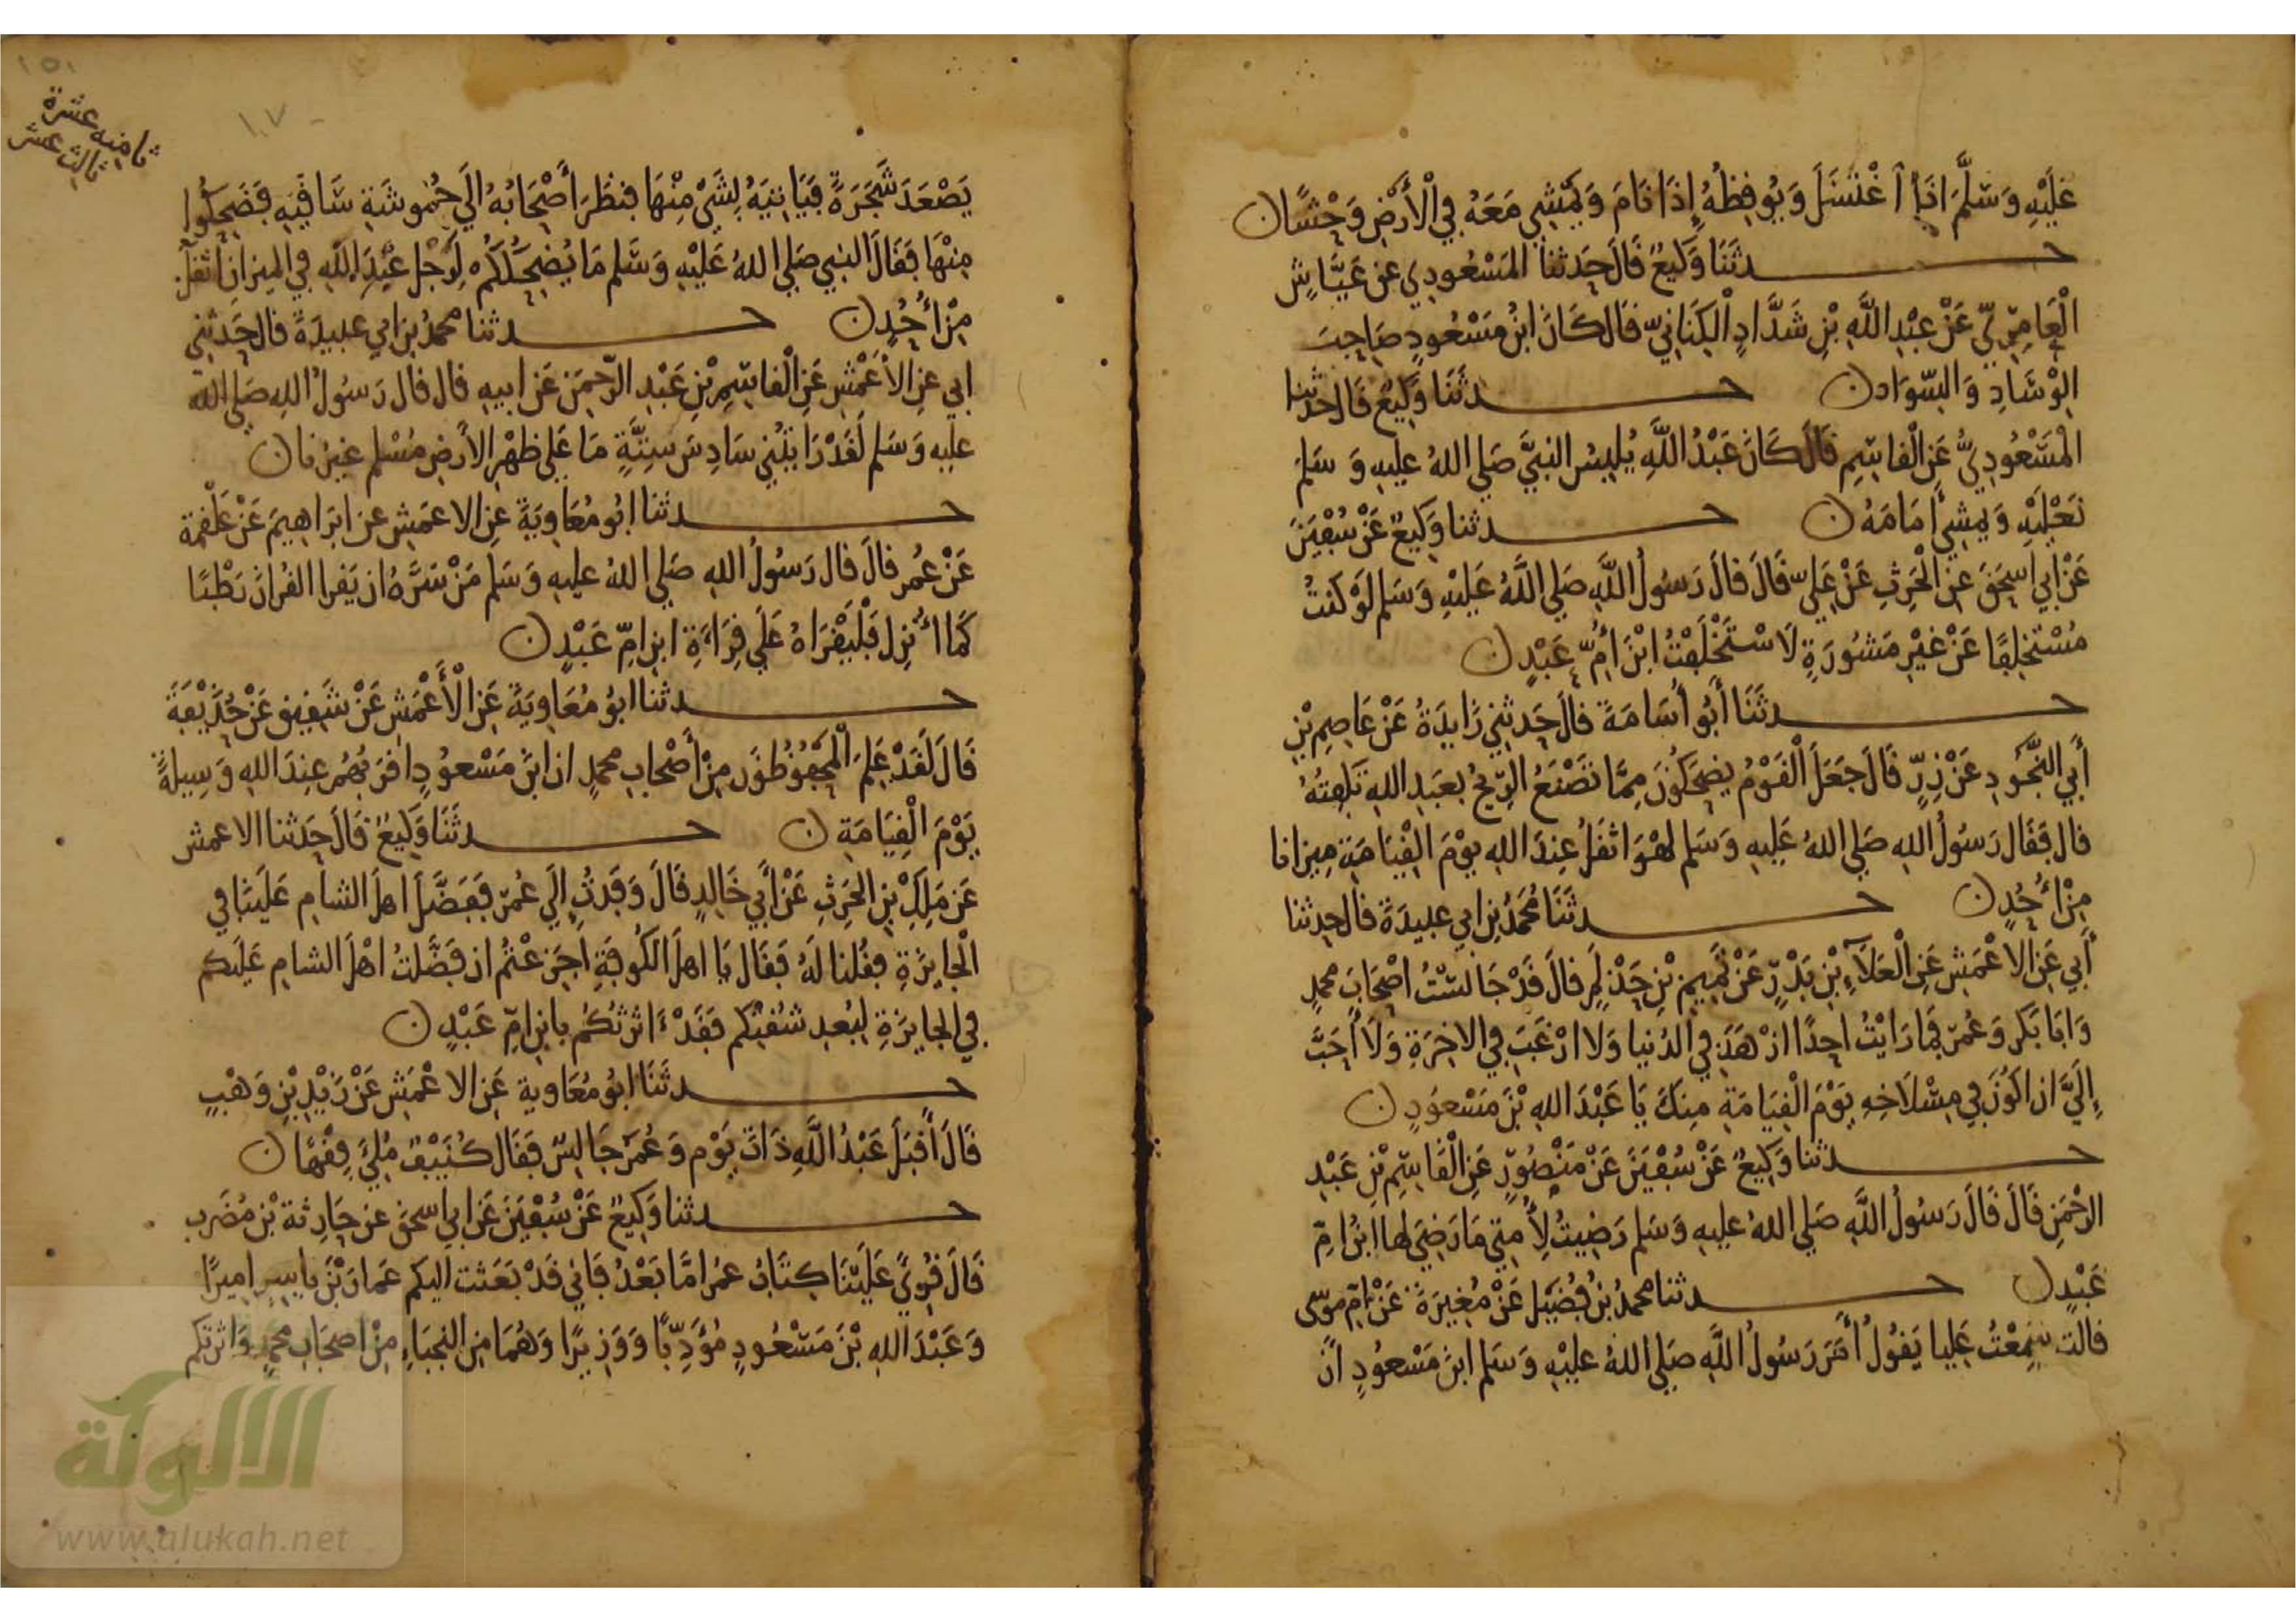 عَلَيْهِ وَسَلَّمَ اذَا اغْتَسَلَ وَيُوقِظُهُ إِذَا نَامَ وَيَمْشِي مَعَهُ فِي الْأَرْضِ وَحْشًا
حدثَنَا وَكِيعٌ قَالَ حَدثنا المَسْعُودِي عن عَيَّاشٍ
الْعَامِرِيّ عَنْ عَبْدِ اللَّهِ بْنِ شَدَّادٍ الْكِنَانِيّ قَال كَانَ ابْنُ مَسْعُودٍ صَاحِبَ
الْوِسَادِ وَالسِّوَاد حدثَنَا وَكِيعٌ قَال حدثنا
الْمَسْعُودِيُّ عَنِ الْقَاسِمِ قَالَ كَانَ عَبْدُ اللَّهِ يُلْبِسُ النبيَّ صَلى اللهُ عليهِ وَسَلمَ
نَعْلَيْهِ وَيمْشِي أَمَامَهُ حدثنا وَكِيعٌ عَنْ سُفْيَنَ
عَنْ أَبِي اسحَقَ عَنِ الْحَرِثِ عَنْ عَلِيّ قَالَ قالَ رَسُولُ اللَّهِ صَلى اللَّهُ عَلَيْهِ وَسَلم لَوْ كنتُ
مُسْتَخْلِفًا عَنْ غَيْرِ مَشُورَةٍ لَاسْتَخْلَفْتُ ابْنَ أُمِّ عَبْدٍ
حدثَنَا أَبُو أُسَامَةَ قالَ حَدثني زَايدَةُ عَنْ عَاصِمِ بْنِ
أَبِي النَّجُودِ عَنْ زِرٍّ قَالَ جَعَلَ الْقَوْمُ يضْحَكُونَ مِمَّا تَصْنَعُ الرِّيحُ بعَبدِ اللهِ تَلْفِتُهُ
قال فَقَال رَسُولُ اللهِ صَلى اللهُ عَليهِ وَسَلم لهُوَ اثقَلُ عِندَ اللهِ يوْمَ الْقِيَامَةِ مِيزانا
مِنْ أُحُدٍ حدثَنَا مُحَمَدُ بن ابي عبيدَةَ قال حدثنا
أَبِي عَنِ الاعْمَشِ عَنِ الْعَلَآءِ بْنِ بَدْرٍ عَنْ تَمِيمِ بْنِ حَذْلَمٍ قالَ قَدْ جَالَسْتُ اصْحَابَ محمدٍ
وَابَا بَكرٍ وَعُمَر فَمَا رَايْتُ احِدًا ازْهَدَ فِي الدُنيا وَلا ارْغَبَ فِي الاخِرَةِ وَلَا أَحَبَّ
إِلَيَّ ان اكُونَ فِي مِسْلَاخِهِ يَوْمَ الْقِيَامَةِ مِنكَ يَا عَبْدَ اللهِ بْنَ مَسْعُودٍ
حدثنا وَكِيعٌ عَنْ سُفْيَنَ عَنْ مَنْصُورٍ عَنِ الْقَاسِمِ بْنِ عَبْدِ
الرحْمَنِ قَالَ قَالَ رَسُولُ اللَّهِ صَلى اللهُ عليهِ وَسَلم رَضِيتُ لِأُمتِي مَا رَضِيَ لها ابْنُ امِّ
عَبْدٍ حدثنا محمدُ بنُ فُضَيل عَنْ مُغِيرَةَ عَنْ امِّ موسى
قالت سَمِعْتُ عَلِيا يَقُولُ أَمَرَ رَسُولُ اللَّهِ صَلى اللهُ عليْهِ وَسَلم ابنَ مَسْعُودٍ انْ
١٥١
ثامنه عشرة
ثالث عشر
١٠٧
يَصْعَدَ شَجَرَةً فَيَاتِيَهُ بِشَيْ مِنْهَا فنظَرَ أَصْحَابُهُ الَي حُمُوشَةِ سَاقَيْهِ فَضَحِكُوا
مِنْهَا فَقَالَ النبي صَلى اللهُ عَلَيْهِ وَسَلم مَا يُضْحِكُكُمْ لَرِجْل عَبْدِ اللَّهِ فِي الميزانِ أَثقلُ
مِنْ أُحُدٍ حدثنا محمدُ بن ابي عبيدَةَ قال حَدثني
ابي عنِ الاعْمَشِ عَنِ الْقاسِمِ بْنِ عَبْدِ الرّحمَنِ عَنْ ابيهِ قال قال رَسُولُ اللهِ صَلى الله
عليه وَسَلم لَقَدْ رَايتُنِي سَادِسَ سِتَّةٍ مَا عَلى ظهْرِ الارْضِ مُسْلِم غيرُنا
حدثنا ابُو مُعَاوِيَةَ عنِ الاعمَشِ عن ابرَاهِيمَ عَنْ عَلْقمة
عَنْ عُمر قالَ قال رَسُولُ اللهِ صَلى اللهُ عليهِ وَسَلم مَنْ سَرَّهُ ان يَقرا القُرانَ رَطْبًا
كَمَا أُنزِلَ فَلْيَقْرَاهُ عَلَي قِرَاءَةِ ابنِ امِّ عَبْدٍ
حدثنا ابوُ مُعَاوِيَةَ عَنِ الْأَعْمَشِ عَنْ شَقِيقٍ عَنْ حُذَيْفَةَ
قَالَ لَقَدْ عَلِمَ الْمَحْفُوظُونَ مِنْ أَصْحَابِ محمدٍ ان ابنَ مَسْعُودٍ اقرَبُهُم عِندَ اللهِ وَسِيلةً
يَوْمَ الْقِيَامَةِ حدثَنَا وَكِيعٌ قَالَ حَدثنا الاعمش
عَن مَلِكِ بْنِ الحَرِثِ عَنْ أَبِي خَالِدٍ قَالَ وَفَدتُ الَي عُمَر فَفَضَّلَ اهلَ الشامِ عَلَيْنَا فِي
الْجَايِزَةِ فقُلنا لَهُ فَقَال يَا اهلَ الكُوفَةِ اجَزِعْتُم ان فَضَّلتُ اهْلَ الشامِ عَلَيكم
فِي الجايِزَةِ لِبُعدِ شُقتكم فَقَدْ ءَاثرْتكُم بابنِ امِّ عَبْدٍ
حدثَنَا ابُو مُعَاوية عَنِ الاعْمَشِ عَنْ زَيْدِ بْنِ وَهْبٍ
قَالَ أَقبَلَ عَبْدُ اللَّهِ ذَاتَ يَوْمٍ وَعُمَرُ جَالِسٌ فَقَال كُنَيْفٌ مُلِئَ فِقْهًا
حدثنا وَكِيعٌ عَنْ سُفْيَنَ عَن ابي اسحَقَ عن حَارِثة بْنِ مُضَرب
قَالَ قُرِيَ عَلَيْنَا كِتَابُ عمَر امَّا بَعْدُ فَاني قَدْ بَعَثت اليكم عَمارَ بْنَ ياسِرٍ امِيرًا
وَعَبْدَ اللهِ بْنَ مَسْعُودٍ مُؤَدِّبًا وَوَزِيرًا وَهُمَا مِن النجبَاءِ مِنْ اصحَابِ محمدٍ وَاثرتكم
الألوكة
www.alukah.net